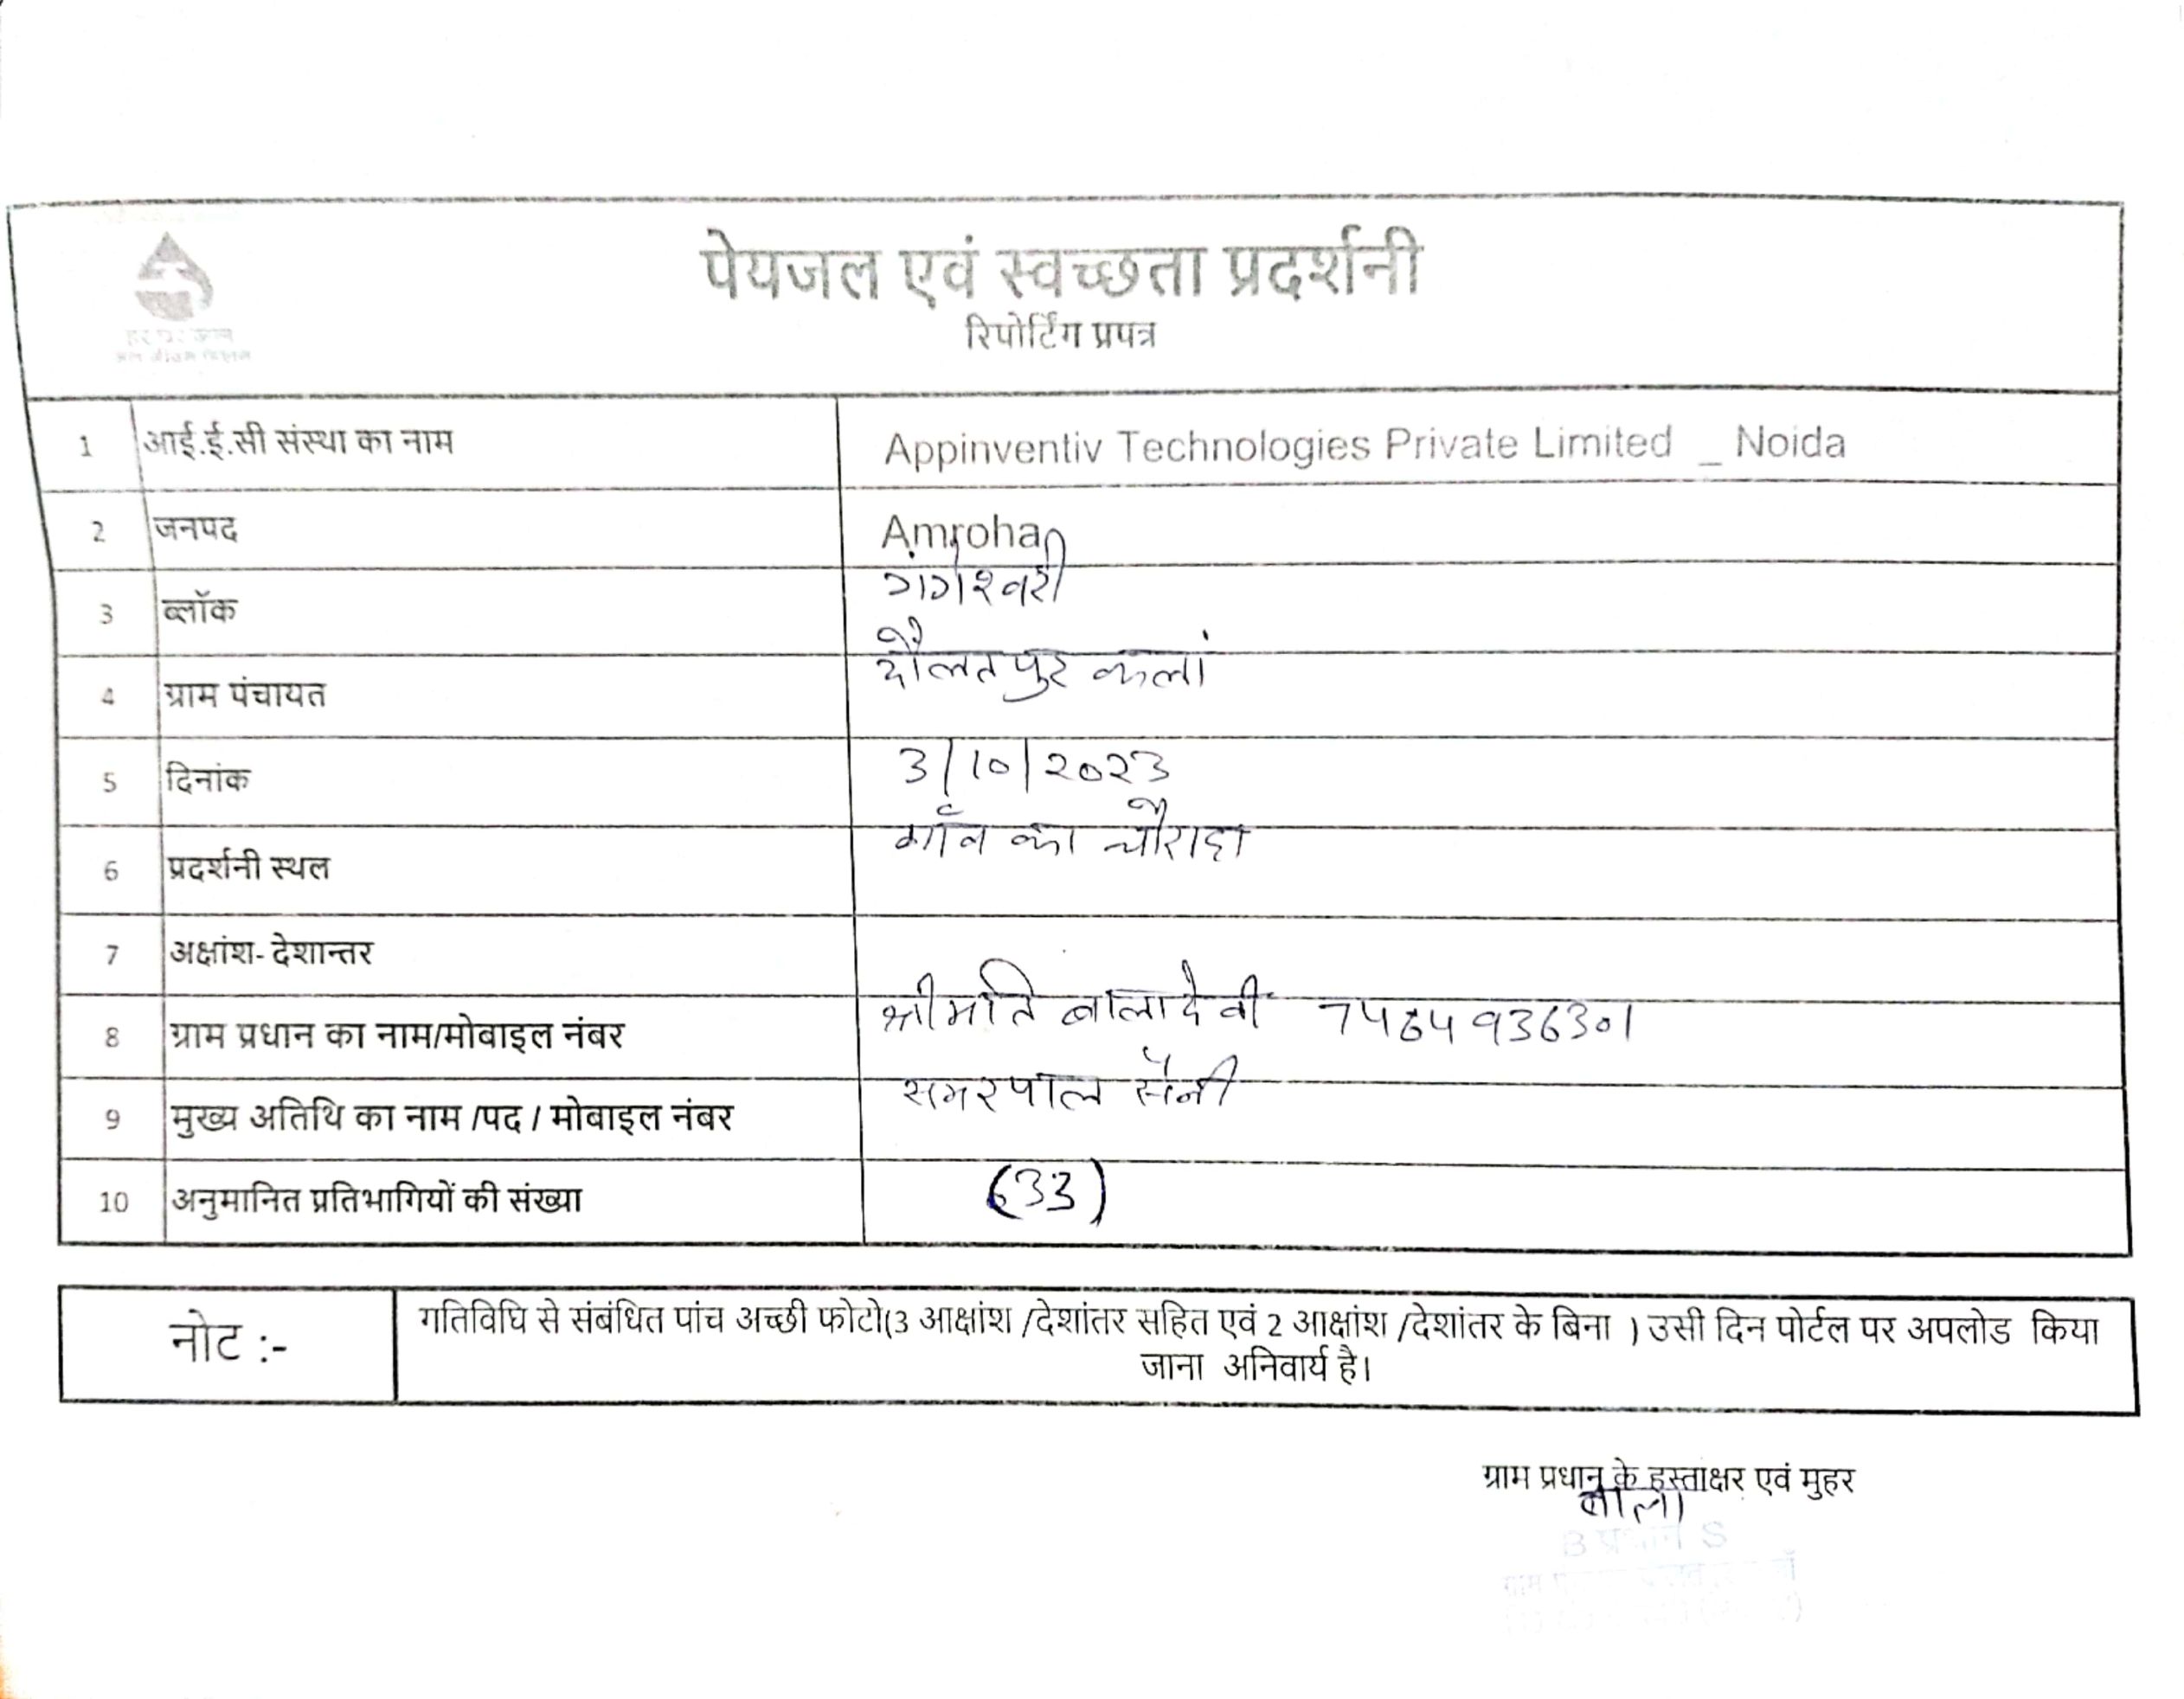 पेयजल एवं स्वच्छता प्रदर्शनी
रिपोर्टिंग प्रपत्र
हर घर जल
जल जीवन मिशन
1 आई.ई.सी संस्था का नाम Appinventiv Technologies Private Limited _ Noida
2 जनपद Amroha
3 ब्लॉक गंगेश्वरी
4 ग्राम पंचायत दौलतपुर कलां
5 दिनांक 3/10/2023
6 प्रदर्शनी स्थल गाँव का चौराहा
7 अक्षांश- देशान्तर
8 ग्राम प्रधान का नाम/मोबाइल नंबर श्रीमति बालादेवी
9 मुख्य अतिथि का नाम /पद / मोबाइल नंबर समरपाल सैनी
10 अनुमानित प्रतिभागियों की संख्या (33)
नोट :- गतिविधि से संबंधित पांच अच्छी फोटो(3 आक्षांश /देशांतर सहित एवं 2 आक्षांश /देशांतर के बिना ) उसी दिन पोर्टल पर अपलोड किया
जाना अनिवार्य है।
ग्राम प्रधान के हस्ताक्षर एवं मुहर
बाला